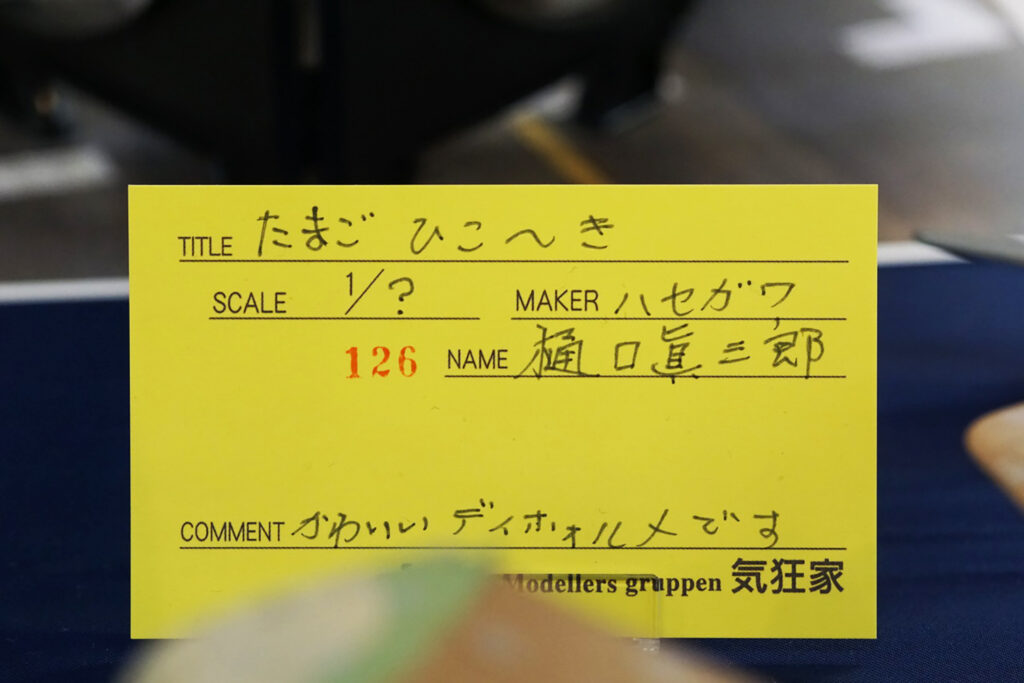 TITLE たまご ひこへき
SCALE 1/? MAKER ハセガワ
126 NAME 樋口眞三郎
COMMENT かわいい ディホォルメです
Modellers gruppen 気狂家